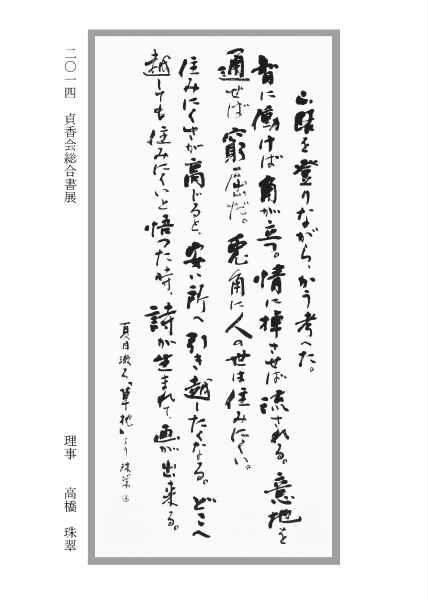 山路を登りながら、かう考へた。
智に働けば角が立つ。情に棹させば流される。意地を
通せば窮屈だ。兎角に人の世は住みにくい。
住みにくさが高じると、安い所へ引き越したくなる。どこへ
越しても住みにくいと悟つた時、詩が生まれて、画が出来る。
夏目漱石「草枕」より 珠翠
二〇一四 貞香会総合書展
理事 高橋 珠翠